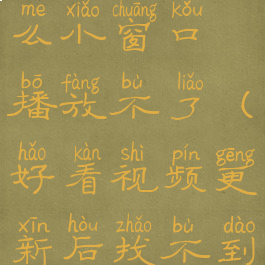 me xiǎo chuāng kǒu
么小窗口
bō fàng bù liǎo
播放不了（
hǎo kàn shì pín gēng
好看视频更
xīn hòu zhǎo bù dào
新后找不到